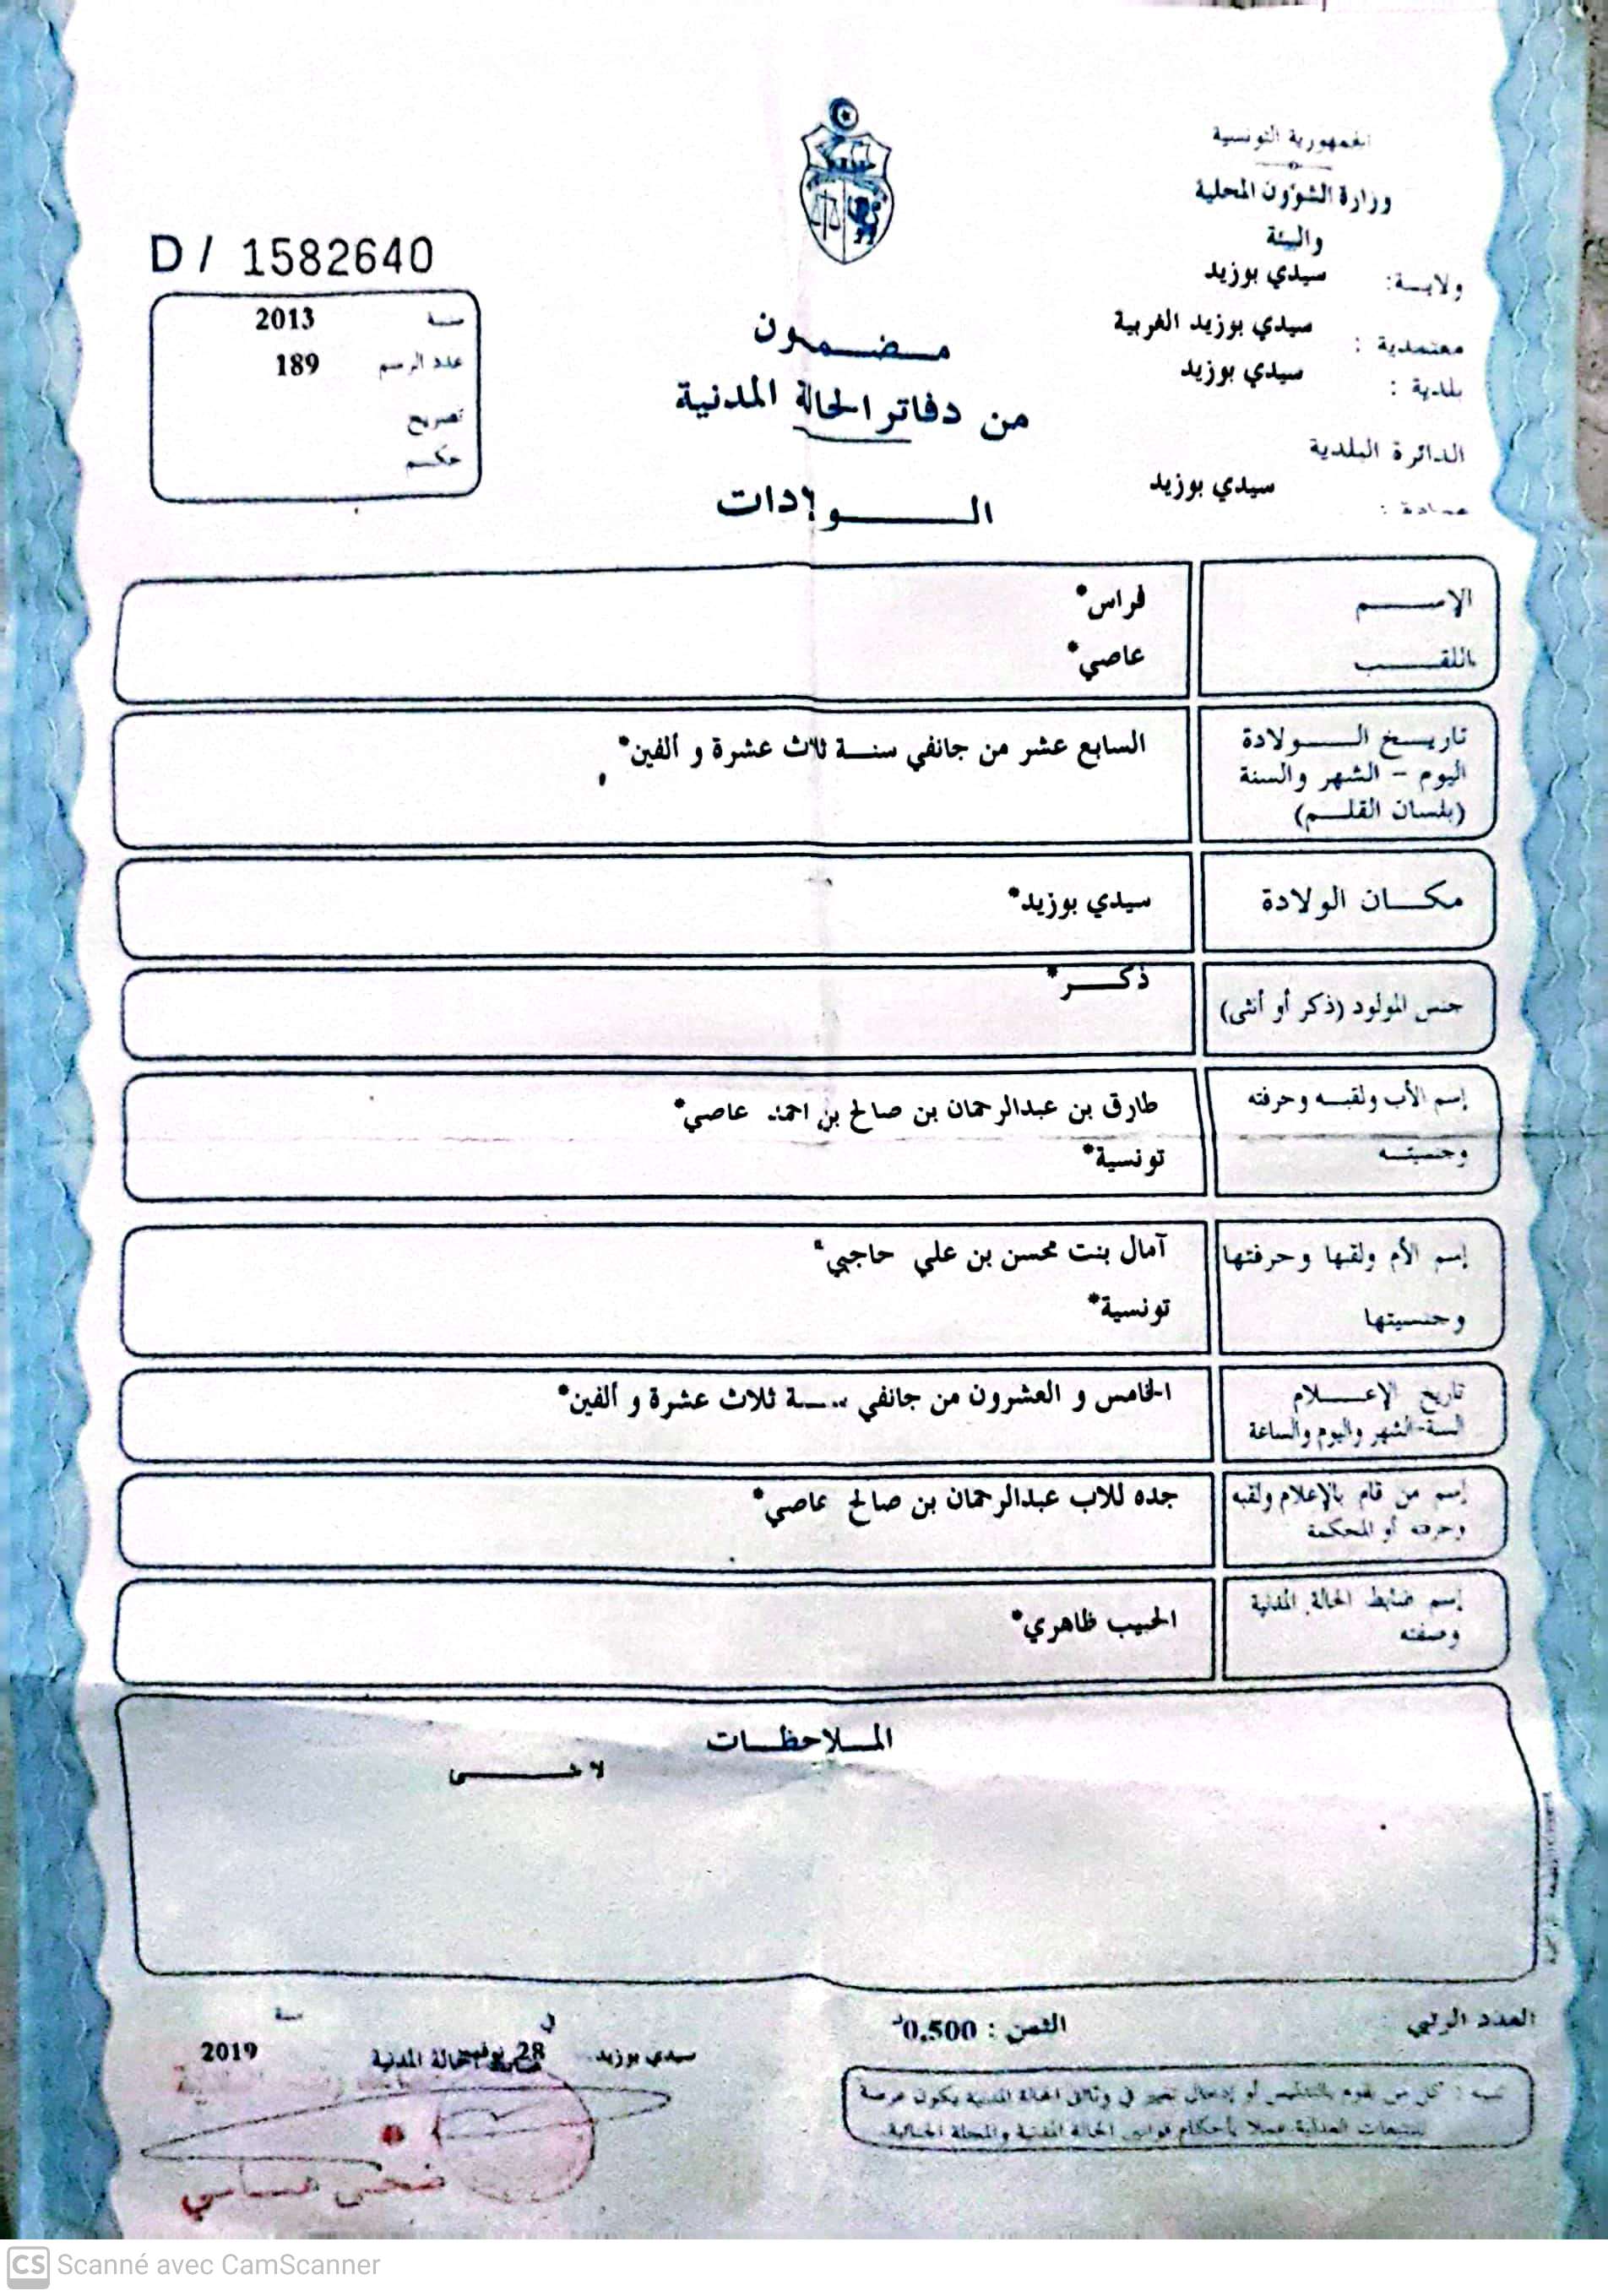 الجمهورية التونسية
وزارة الشؤون المحلية
والبيئة
ولايـــة: سيدي بوزيد
معتمدية : سيدي بوزيد الغربية
بلدية : سيدي بوزيد
الدائرة البلدية
سيدي بوزيد
عمادة :
D / 1582640
سنة 2013
عدد الرسم 189
تصريح
حكم
مضمون
من دفاتر الحالة المدنية
الــولادات
الإســـم فراس*
اللقـــب عاصي*
تاريـــخ الـــولادة السابع عشر من جانفي سنـــة ثلاث عشرة و ألفين*
اليوم - الشهر والسنة
(بلسان القلـــم)
مكـــان الولادة سيدي بوزيد*
جنس المولود (ذكر أو أنثى) ذكـــر*
إسم الأب ولقبـــه وحرفته طارق بن عبدالرحمان بن صالح بن احمد عاصي*
وجنسيتـــه تونسية*
إسم الأم ولقبها وحرفتها آمال بنت محسن بن علي حاجبي*
وجنسيتها تونسية*
تاريخ الإعـــلام الخامس و العشرون من جانفي سنـــة ثلاث عشرة و ألفين*
السنة-الشهر واليوم والساعة
إسم من قام بالإعلام ولقبه جده للاب عبدالرحمان بن صالح عاصي*
وحرفته أو المحكمة
إسم ضابط الحالة المدنية الحبيب ظاهري*
وصفته
الملاحظـــات
لا شـــى
العدد الرتبي
الثمن : 0,500د
سيدي بوزيد في 28 نوفمبر سنة 2019
ضابط الحالة المدنية
تنبيه : كل من يقوم بالتدليس أو إدخال تغيير في وثائق الحالة المدنية يكون عرضة
للتتبعات العدلية عملا بأحكام قوانين الحالة المدنية والمجلة الجنائية.
CS Scanné avec CamScanner